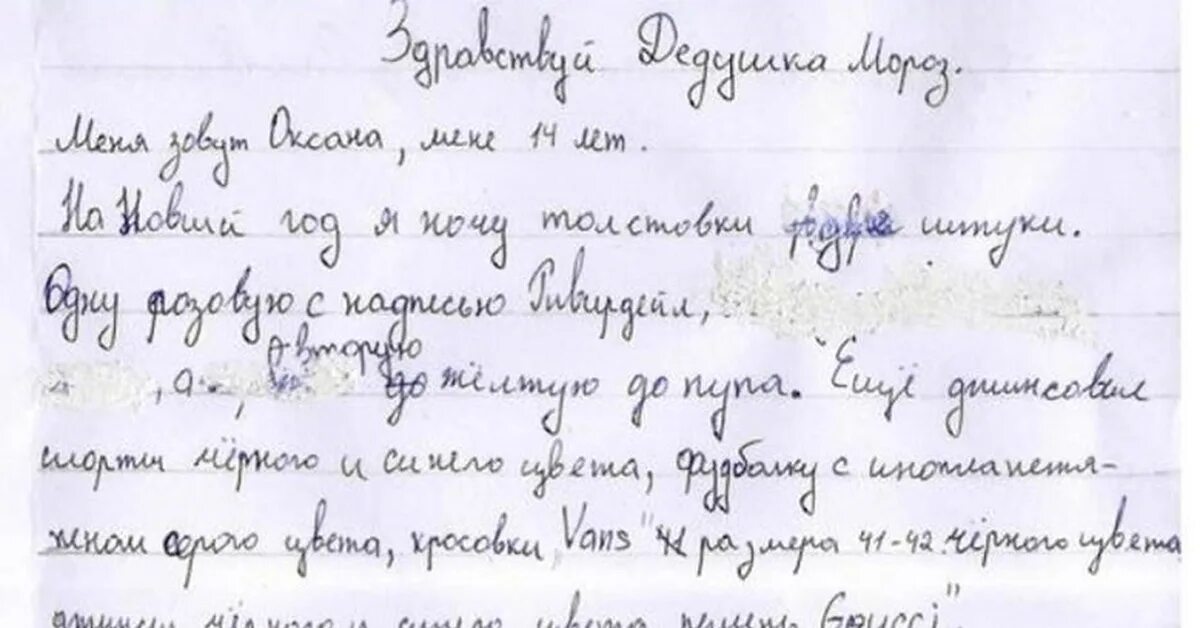 Здравствуй Дедушка Мороз.
Меня зовут Оксана, мене 14 лет.
На Новый год я хочу толстовки штуки.
Одну розовую с надписью Ривирдейл,
вторую
, а , до жёлтую до пупа. Ещё джинсовые
шорты чёрного и синего цвета, фудболку с инопланетя-
жном серого цвета, кросовки Vans" размера 41-42 чёрного цвета
чёрного и синего цвета Guccі"